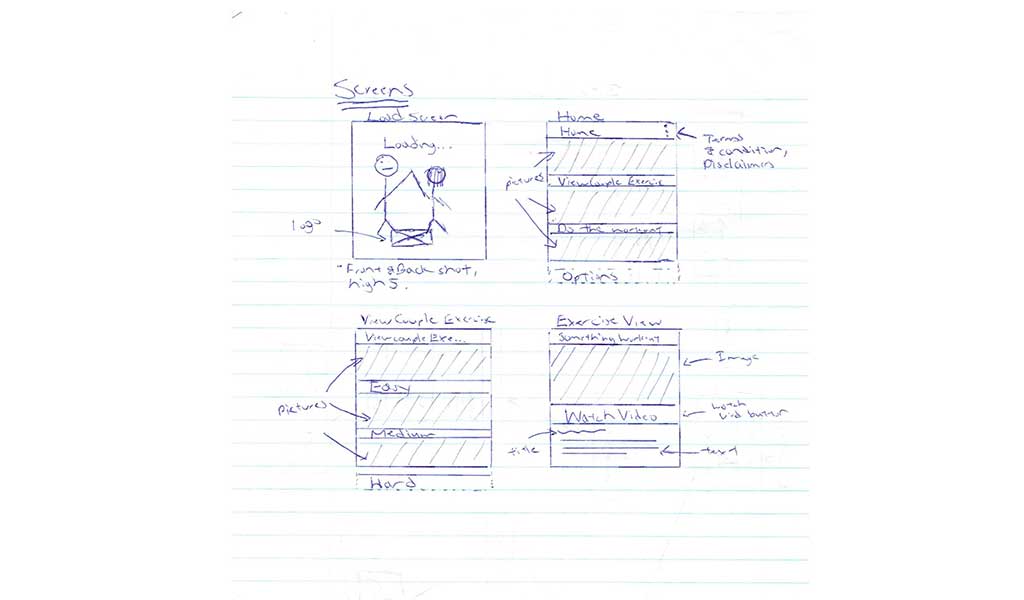 Screens
Load screen
Loading...
Logo
Front & Back shot,
high 5.
Home
Home
Terms
& condition,
Disclaimers
pictures
View Couple Exercise
Do the workout
Options
View Couple Exercise
View couple Exe...
pictures
Easy
Medium
Hard
Exercise View
Something Workout
Image
Watch Video
watch
vid button
title
text